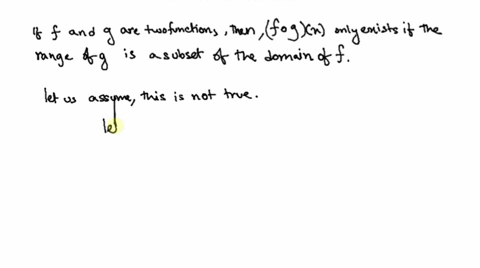 If f and g are two functions, then, (fog)(x) only exists if the
range of g is a subset of the domain of f.
let us assume, this is not true.
let